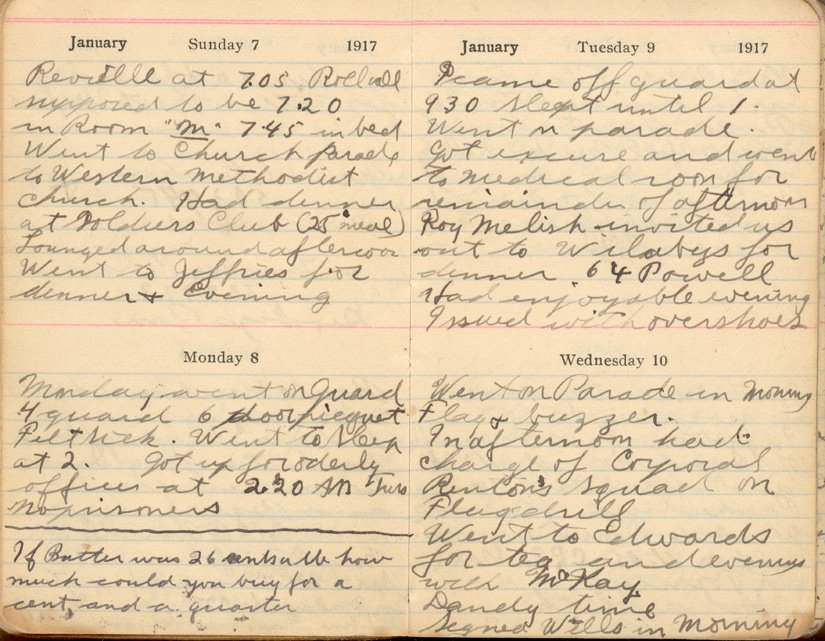 January Sunday 7 1917
Reveille at 7.05. Rollcall
supposed to be 7.20
in Room "M" 7.45 in bed
Went to Church parade
to Western Methodist
Church. Had dinner
at Soldiers Club (25¢ meal)
Lounged around afternoon
Went to Jeffries for
dinner + Evening
Monday 8
Monday went on Guard
4 guard 6 door picquet
Felt sick. Went to sleep
at 2. Got up for orderly
officer at 2.20 AM Tues
No prisoners
If Butter was 26 cents a lb how
much could you buy for a
cent, and a quarter
January Tuesday 9 1917
I came off guard at
930 slept until 1.
Went n parade.
Got excuse and went
to medical room for
remainder of afternoon
Roy Melish invited us
out to Wilabys for
dinner 64 Powell
Had enjoyable evening
Issued with overshoes
Wednesday 10
Went on Parade in Morning
Flag & buzzer.
In afternoon had
charge of Corporal
squad on
Flagdrill
Went to Edwards
for tea and evening
with McKay
Dandy time
Signed Wills in Morning